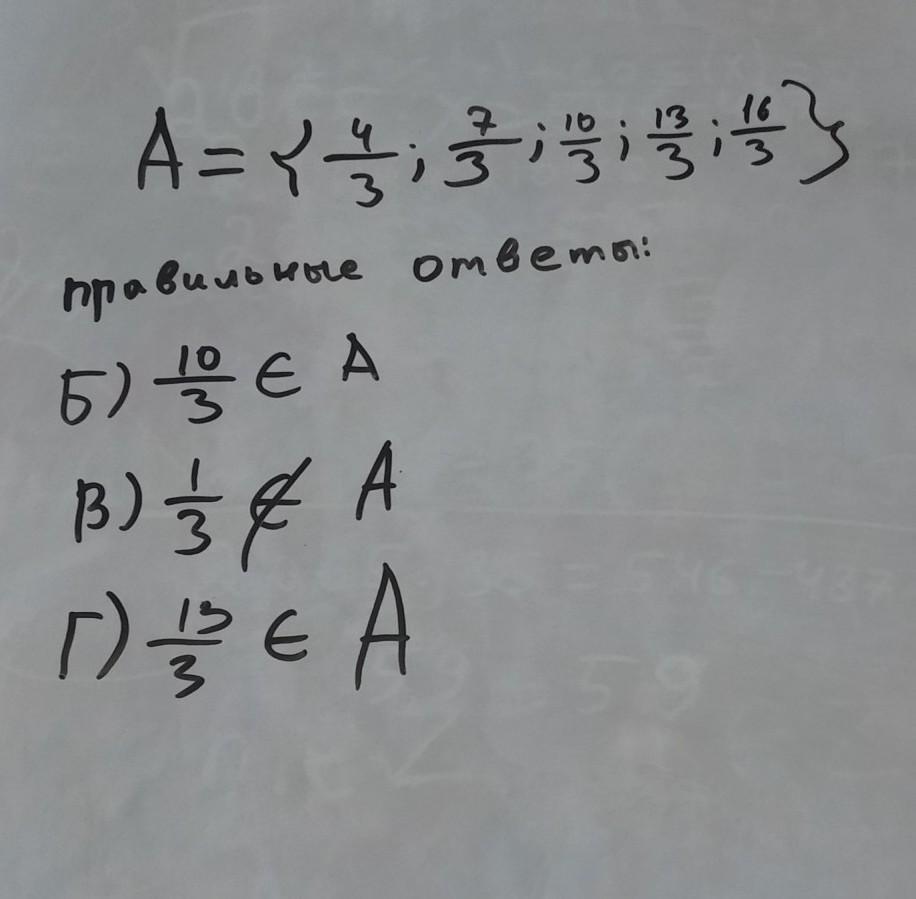 A = { 4/3 ; 7/3 ; 10/3 ; 13/3 ; 16/3 }
правильные ответы:
Б) 10/3 ∈ A
В) 1/3 ∉ A
Г) 13/3 ∈ A
= 546-437
= 59